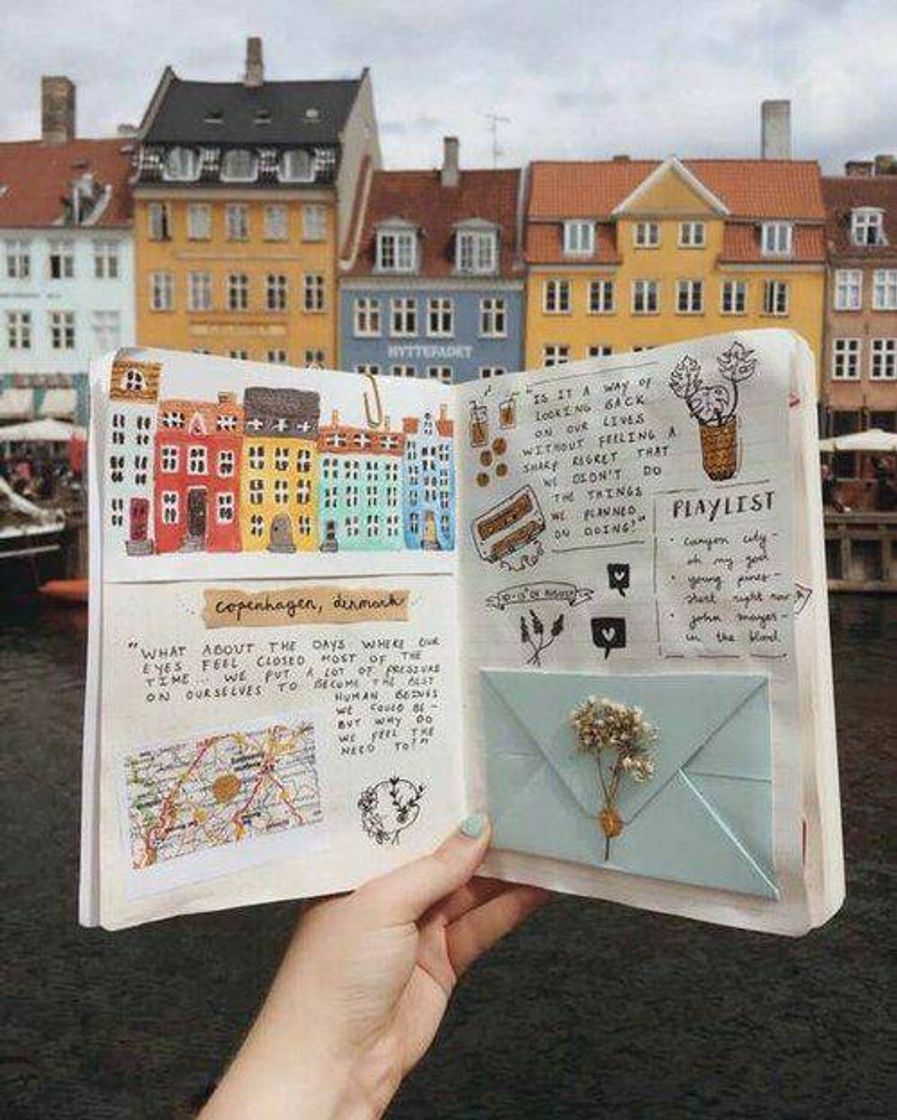 HYTTEFADET
copenhagen, denmark
"WHAT ABOUT THE DAYS WHERE OUR
EYES FEEL CLOSED MOST OF THE
TIME... WE PUT A LOT OF PRESSURE
ON OURSELVES TO BECOME THE BEST
HUMAN BEINGS
WE COULD BE -
BUT WHY DO
WE FEEL THE
NEED TO?"
"IS IT A WAY OF
LOOKING BACK
ON OUR LIVES
WITHOUT FEELING A
SHARP REGRET THAT
WE DIDN'T DO
THE THINGS
WE PLANNED
ON DOING?"
OF AUGUST
PLAYLIST
• canyon city -
oh my god
• young pines -
start right now
• john mayer -
in the blood